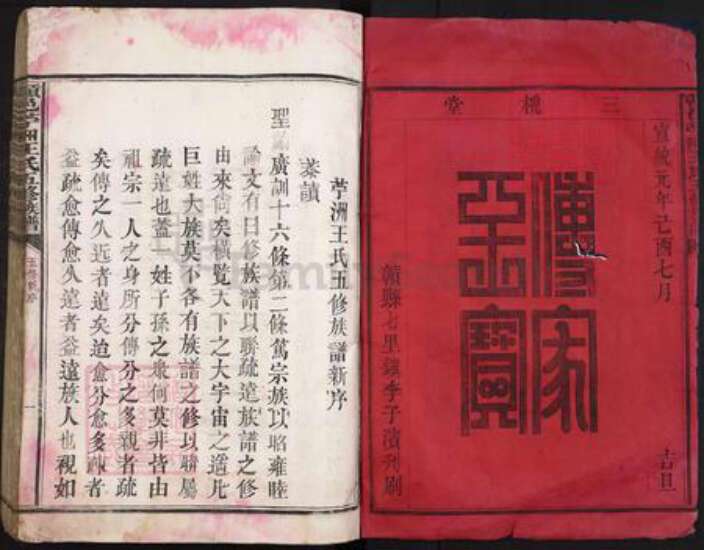 三槐堂
宣統元年己酉七月
吉旦
傳家
至寶
贛縣七里鎮李子濱刋刷
苧洲王氏五修族譜新序
恭讀
聖諭廣訓十六條第二條篤宗族以昭雍睦
諭文有曰修族譜以聯疏遠族譜之修
由來尙矣橫覧天下之大宇宙之遥凡
巨姓大族莫不各有族譜之修以聯屬
疏遠也蓋一姓子孫之衆何莫非皆由
祖宗一人之身所分傳分之多親者疏
矣傳之久近者遠矣迨愈分愈多疎者
益疏愈傳愈久遠者益遠族人也視如
苧洲王氏五修族譜
五修新序
一